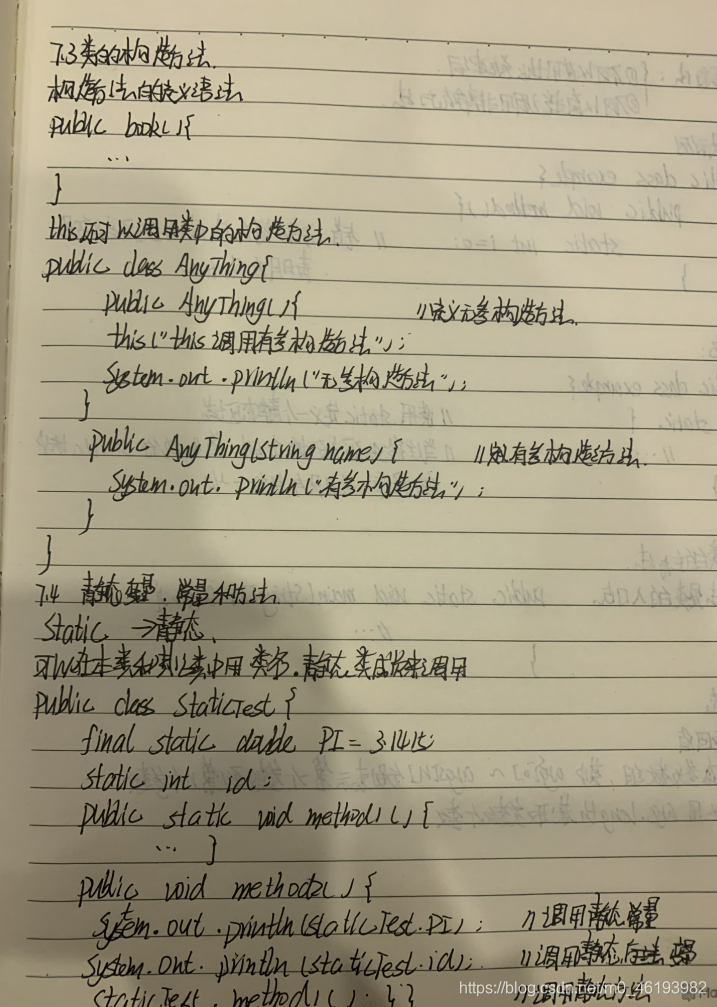 7.3 类的构造方法.
构造方法的定义语法
public book(){
...
}
this还可以调用类中的构造方法.
public class AnyThing{
public AnyThing(){ //定义无参构造方法.
this("this调用有参构造方法");
System.out.println("无参构造方法");
}
public AnyThing(String name){ //定义有参构造方法.
System.out.println("有参构造方法");
}
}
7.4 静态变量.常量和方法.
Static → 静态.
可以在本类和其他类中用 类名.静态类成员来调用
public class StaticTest{
final static double PI = 3.1415;
static int id;
public static void method1(){
... }
public void method2(){
System.out.println(StaticTest.PI); //调用静态常量
System.out.println(StaticTest.id); //调用静态变量
StaticTest.method1(); }} //调用静态方法
https://blog.csdn.net/m0_46193982